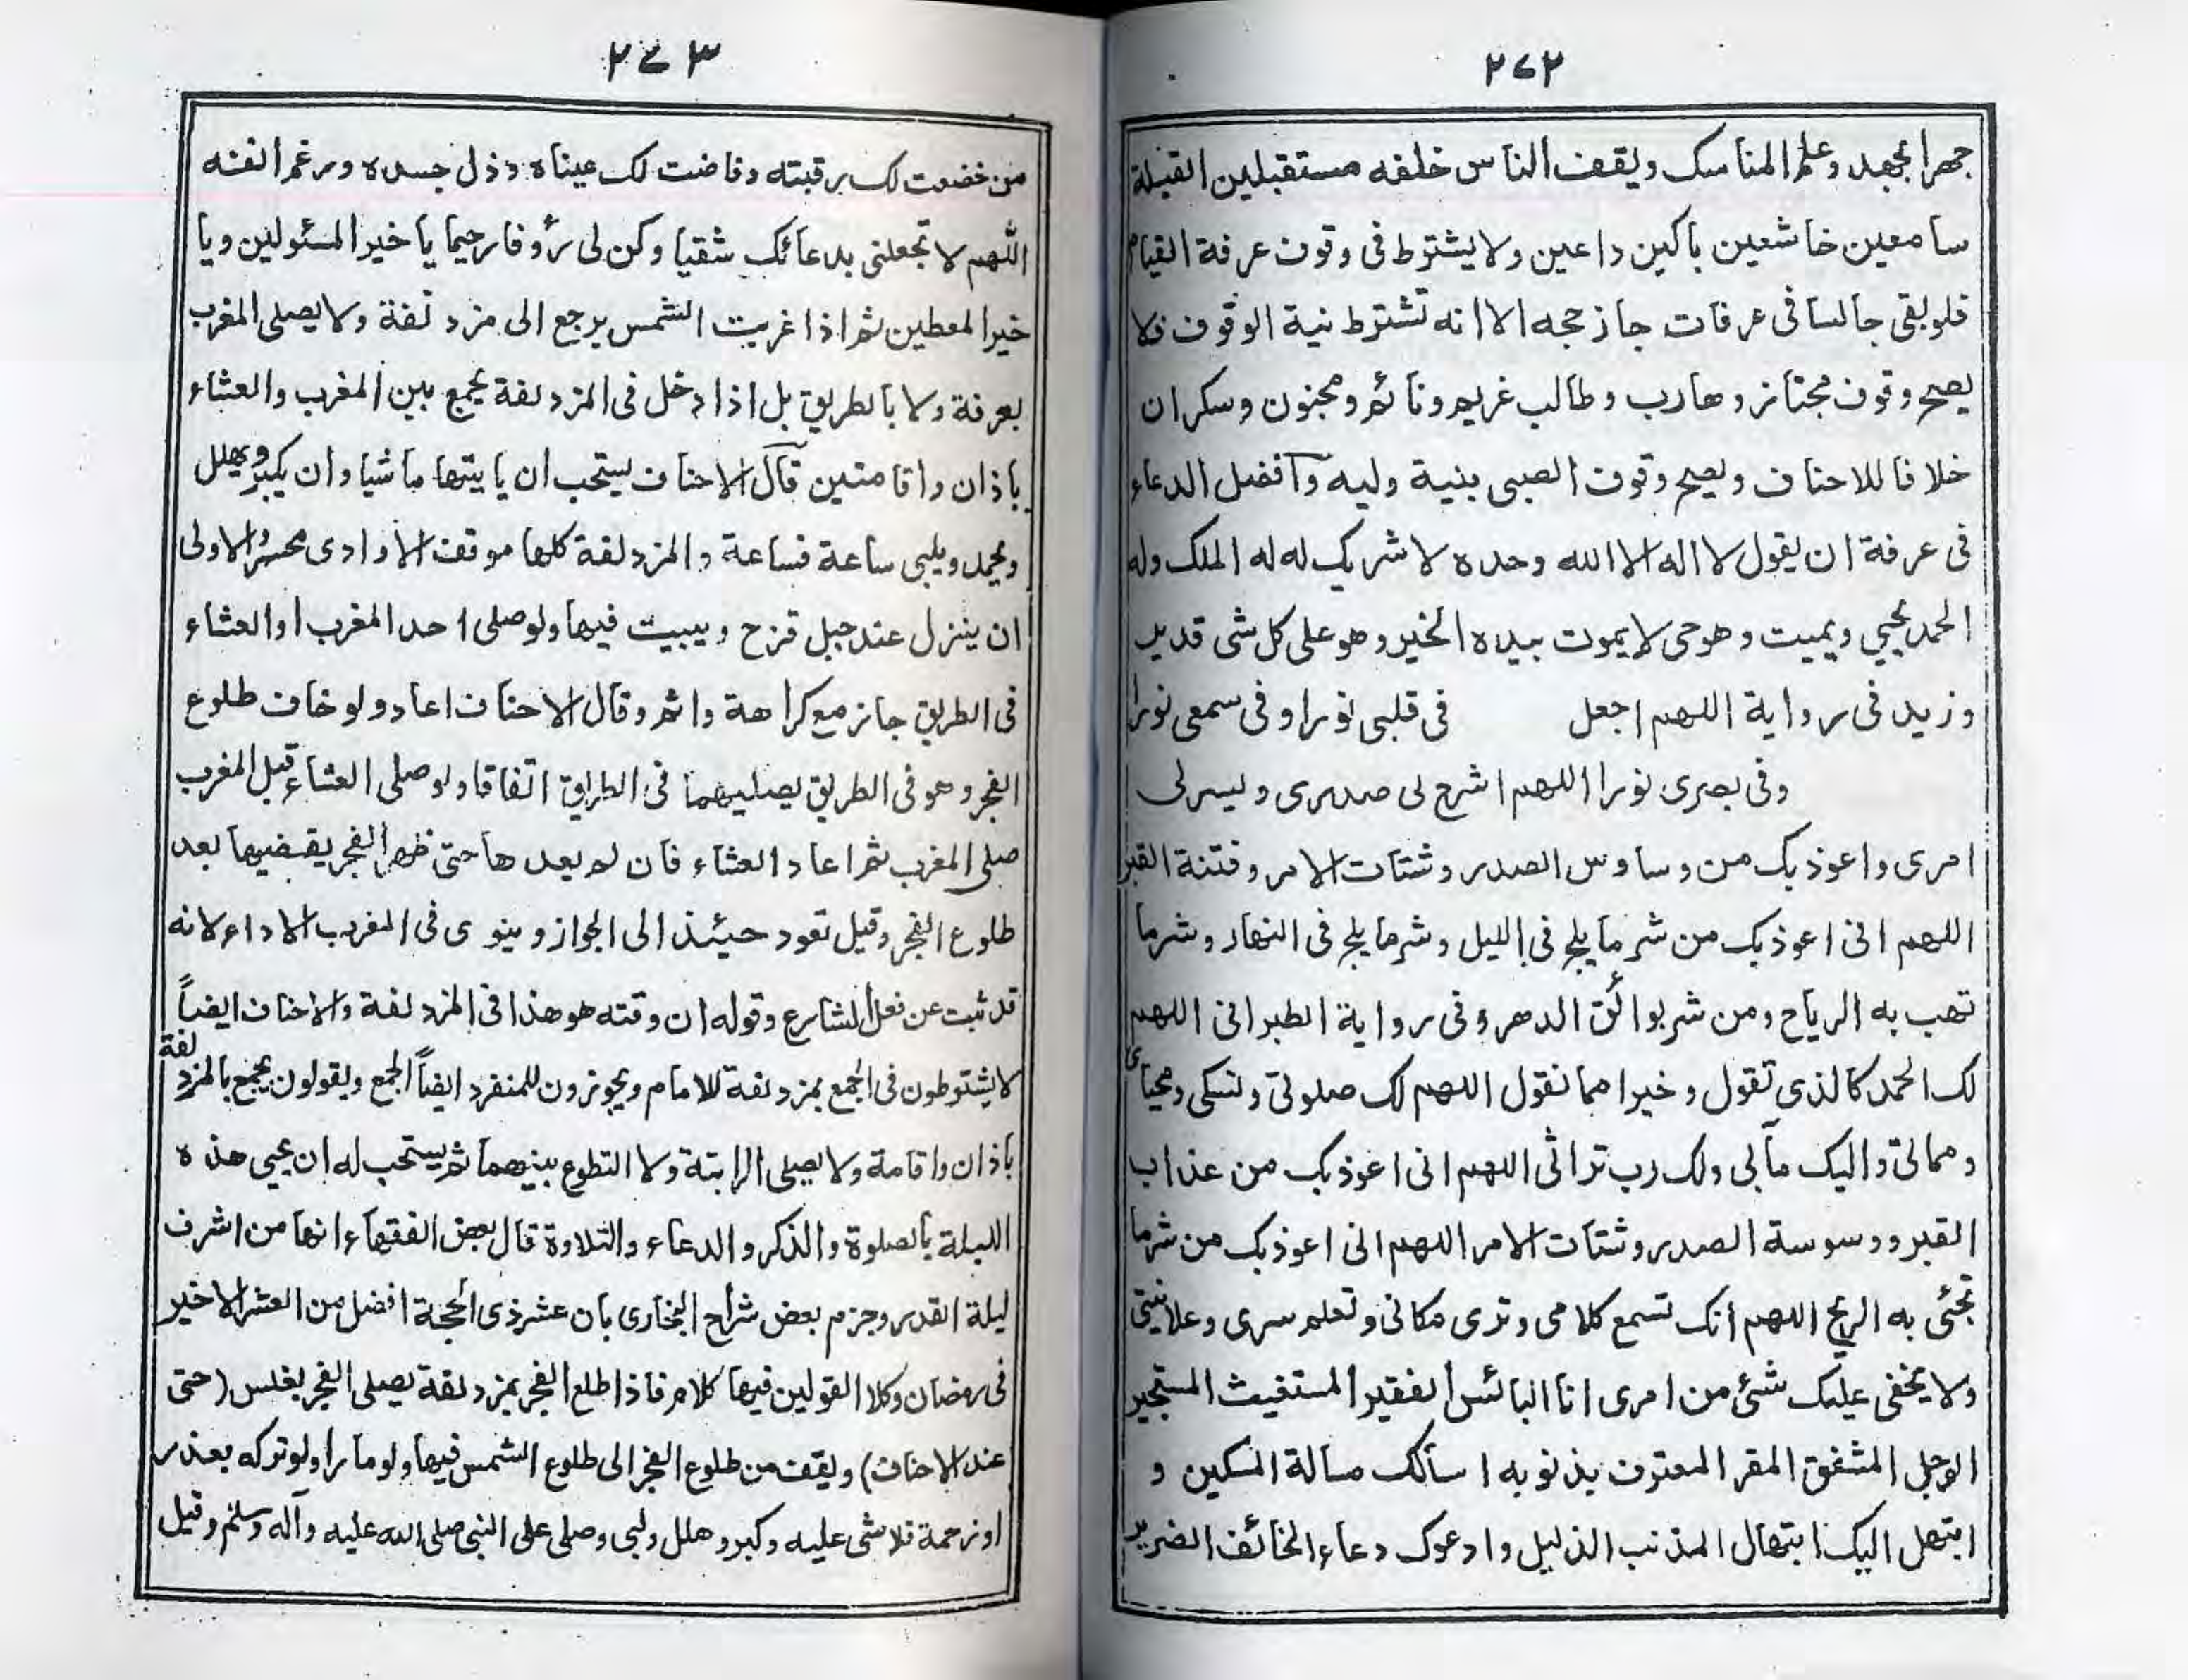 ٢٧٢
جهرا بجهد وعلم المناسك ويقف الناس خلفه مستقبلين القبلة
سامعين خاشعين باكين داعين ولا يشترط فى وقوف عرفة القيام
فلو بقى جالسا فى عرفات جاز حجه الا انه تشترط نية الوقوف فلا
يصح وقوف مجتاز وهارب وطالب غريم ونائم ومجنون وسكران
خلافا للاحناف ويصح وقوف الصبى بنية وليه وآفضل الدعاء
فى عرفة ان يقول لا اله الا الله وحده لا شريك له له الملك وله
الحمد يحيي ويميت وهو حى لا يموت بيده الخير وهو على كل شى قدير
وزيد فى رواية اللهم اجعل فى قلبى نورا وفى سمعى نورا
وفى بصرى نورا اللهم اشرح لى صدرى ويسرلى
امرى واعوذ بك من وساوس الصدر وشتات الامر وفتنة القبر
اللهم انى اعوذ بك من شر ما يلج فى الليل وشر ما يلج فى النهار وشر ما
تهب به الرياح ومن شر بوائق الدهر وفى رواية الطبرانى اللهم
لك الحمد كالذى تقول وخيرا مما نقول اللهم لك صلوتى ونسكى ومحياى
ومماتى واليك مآبى ولك رب تراثى اللهم انى اعوذ بك من عذاب
القبر ووسوسة الصدر وشتات الامر اللهم انى اعوذ بك من شر ما
تجئى به الريح اللهم انك تسمع كلامى وترى مكانى وتعلم سرى وعلانيتى
ولا يخفى عليك شئ من امرى انا البائس الفقير المستغيث المستجير
الوجل المشفق المقر المعترف بذنوبه اسألك مسالة المسكين و
ابتهل اليك ابتهال المذنب الذليل وادعوك دعاء الخائف الضرير
٢٧٣
من خضعت لك رقبته وفاضت لك عيناه وذل جسده ورغم انفه
اللّهم لا تجعلنى بدعائك شقيا وكن لى رؤوفا رحيما يا خير المسئولين ويا
خير المعطين ثم اذا غربت الشمس يرجع الى مزدلفة ولا يصلى المغرب
بعرفة ولا بالطريق بل اذا دخل فى المزدلفة يجمع بين المغرب والعشاء
باذان واقامتين قآل الاحناف يستحب ان ياتيها ماشيا وان يكبر ويهلل
ويحمد ويلبى ساعة فساعة والمزدلفة كلها موقف الا وادى محسر والاولى
ان ينزل عند جبل قزح ويبيت فيها ولو صلى احد المغرب او العشاء
فى الطريق جاز مع كراهة واثم وقال الاحناف اعاد ولو خاف طلوع
الفجر وهو فى الطريق يصليهما فى الطريق اتفاقا ولو صلى العشاء قبل المغرب
صلى المغرب ثم اعاد العشاء فان لم يعدها حتى ظهر الفجر يقضيها بعد
طلوع الفجر وقيل تعود حينئذ الى الجواز وينوى فى المغرب الاداء لانه
قد ثبت عن فعل الشارع وقوله ان وقته هو هذا فى المزدلفة والاحناف ايضاً
لا يشترطون فى الجمع بمزدلفة للامام ويجوزون للمنفرد ايضاً الجمع ويقولون يجمع بالمزدلفة
باذان واقامة ولا يصلى الراتبة ولا التطوع بينهما ثم يستحب له ان يحيى هذه
الليلة بالصلوة والذكر والدعاء والتلاوة قال بعض الفقهاء انها من اشرف
ليلة القدر وجزم بعض شراح البخارى بان عشر ذى الحجة افضل من العشر الاخير
فى رمضان وكلا القولين فيها كلام فاذا طلع الفجر بمزدلفة يصلى الفجر بغلس (حتى
عند الاحناف) ويقف من طلوع الفجر الى طلوع الشمس فيها ولو مارا ولو تركه بعذر
او زحمة فلا شى عليه وكبر وهلل ولبى وصلى على النبى صلى الله عليه وآله وسلم وقيل